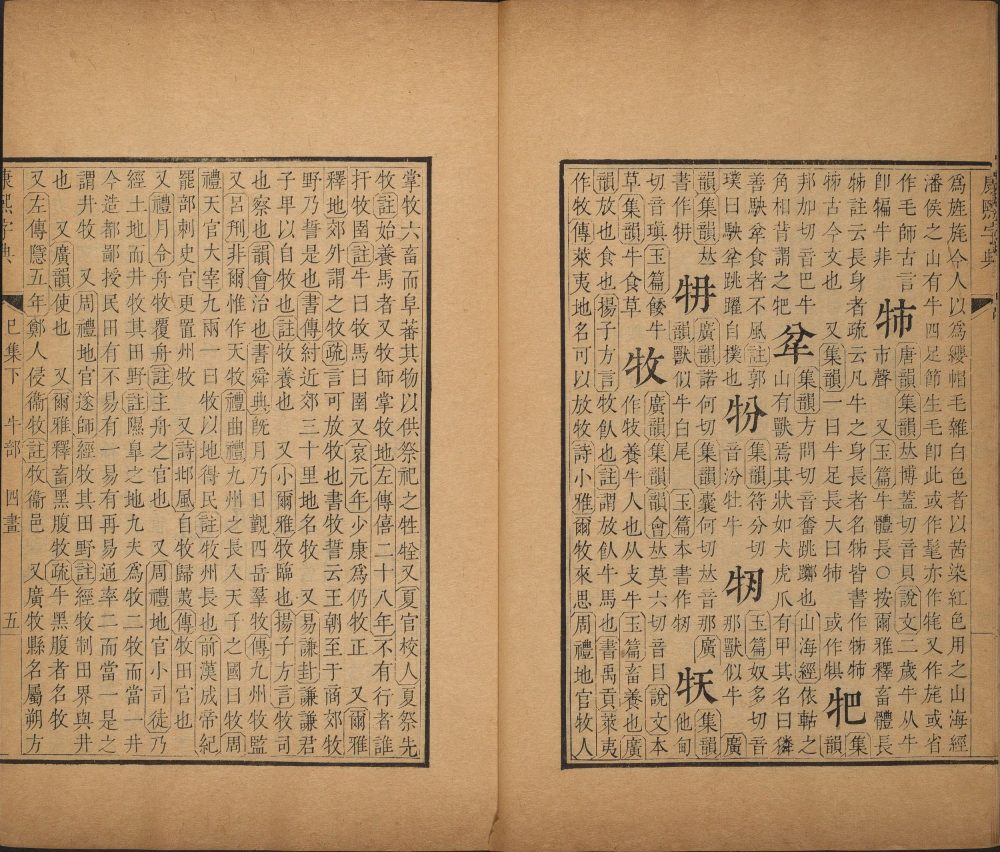 康熙字典
為旌旄今人以為纓帽毛雜白色者以茜染紅色用之山海經
潘侯之山有牛四足節生毛卽此或作髦亦作牦又作旄或省
作毛師古言 㸬 唐韻集韻𠀤博蓋切音貝說文二歲牛从牛
卽犏牛非 市聲 又玉篇牛體長○按爾雅釋畜體長
㸬註云長身者疏云凡牛之身長者名㸬皆書作㸬㸬
㸬古今文也 又集韻一曰牛足長大曰㸬 或作犋 㸭 集韻
邦加切音巴牛 㸮 集韻方問切音奮跳躑也山海經依軲之
角相背謂之㸭 山有獸焉其狀如犬虎爪有甲其名曰獜
善駚㸮食者不風註郭 㸮 集韻符分切 㸎 玉篇奴多切音
璞曰駚㸮跳躍自撲也 音汾牡牛 那獸似牛 廣
韻集韻𠀤 㸶 廣韻諾何切集韻囊何切𠀤音那廣
書作㸶 韻獸似牛白尾 玉篇本書作㸎 㸰 集韻他甸
切音瑱玉篇餧牛 牧 廣韻集韻韻會𠀤莫六切音目說文本
草集韻牛食草 作牧養牛人也从攴牛玉篇畜養也廣
韻放也食也揚子方言牧飤也註謂放飤牛馬也書禹貢萊夷
作牧傳萊夷地名可以放牧詩小雅爾牧來思周禮地官牧人
掌牧六畜而阜蕃其物以供祭祀之牲牷又夏官校人夏祭先
牧註始養馬者又牧師掌牧地左傳僖二十八年不有行者誰
扞牧圉註牛曰牧馬曰圉又哀元年少康為仍牧正 又爾雅
釋地郊外謂之牧疏言可放牧也書牧誓云王朝至于商郊牧
野乃誓是也書傳紂近郊三十里地名牧 又易謙卦謙謙君
子卑以自牧也註牧養也 又小爾雅牧臨也揚子方言牧司
也察也韻會治也書舜典旣月乃日覲四岳羣牧傳九州牧監
又呂刑非爾惟作天牧禮曲禮九州之長入天子之國曰牧周
禮天官大宰九兩一曰牧以地得民註牧州長也前漢成帝紀
罷部刺史官更置州牧 又詩邶風自牧歸荑傳牧田官也
又禮月令舟牧覆舟註主舟之官也 又周禮地官小司徒乃
經土地而井牧其田野註隰皐之地九夫為牧二牧而當一井
今造都鄙授民田有不易有一易有再易通率二而當一是之
謂井牧 又周禮地官遂師經牧其田野註經牧制田界與井
也 又廣韻使也 又爾雅釋畜黑腹牧疏牛黑腹者名牧
又左傳隱五年鄭人侵衞牧註牧衞邑 又廣牧縣名屬朔方
康熙字典 巳集下 牛部 四畫 五